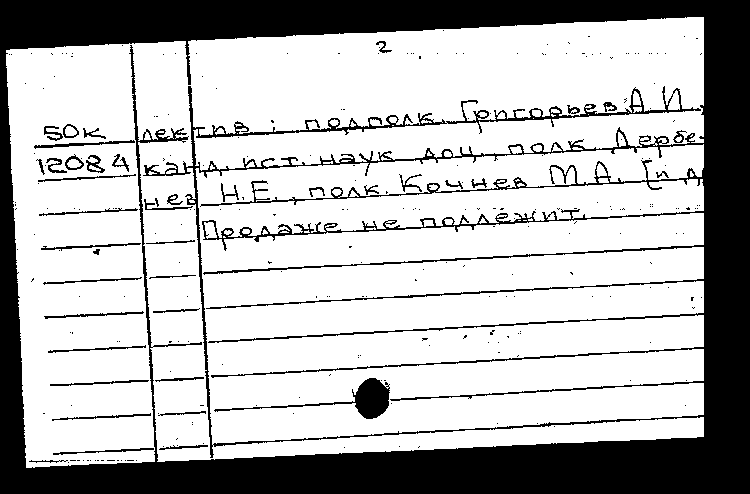 2
50к лектив: подполк. Григорьев А.И.,
12084 канд. ист. наук доц., полк. Дербе-
нев Н.Е., полк. Кочнев М.А. [и д
Продаже не подлежит.